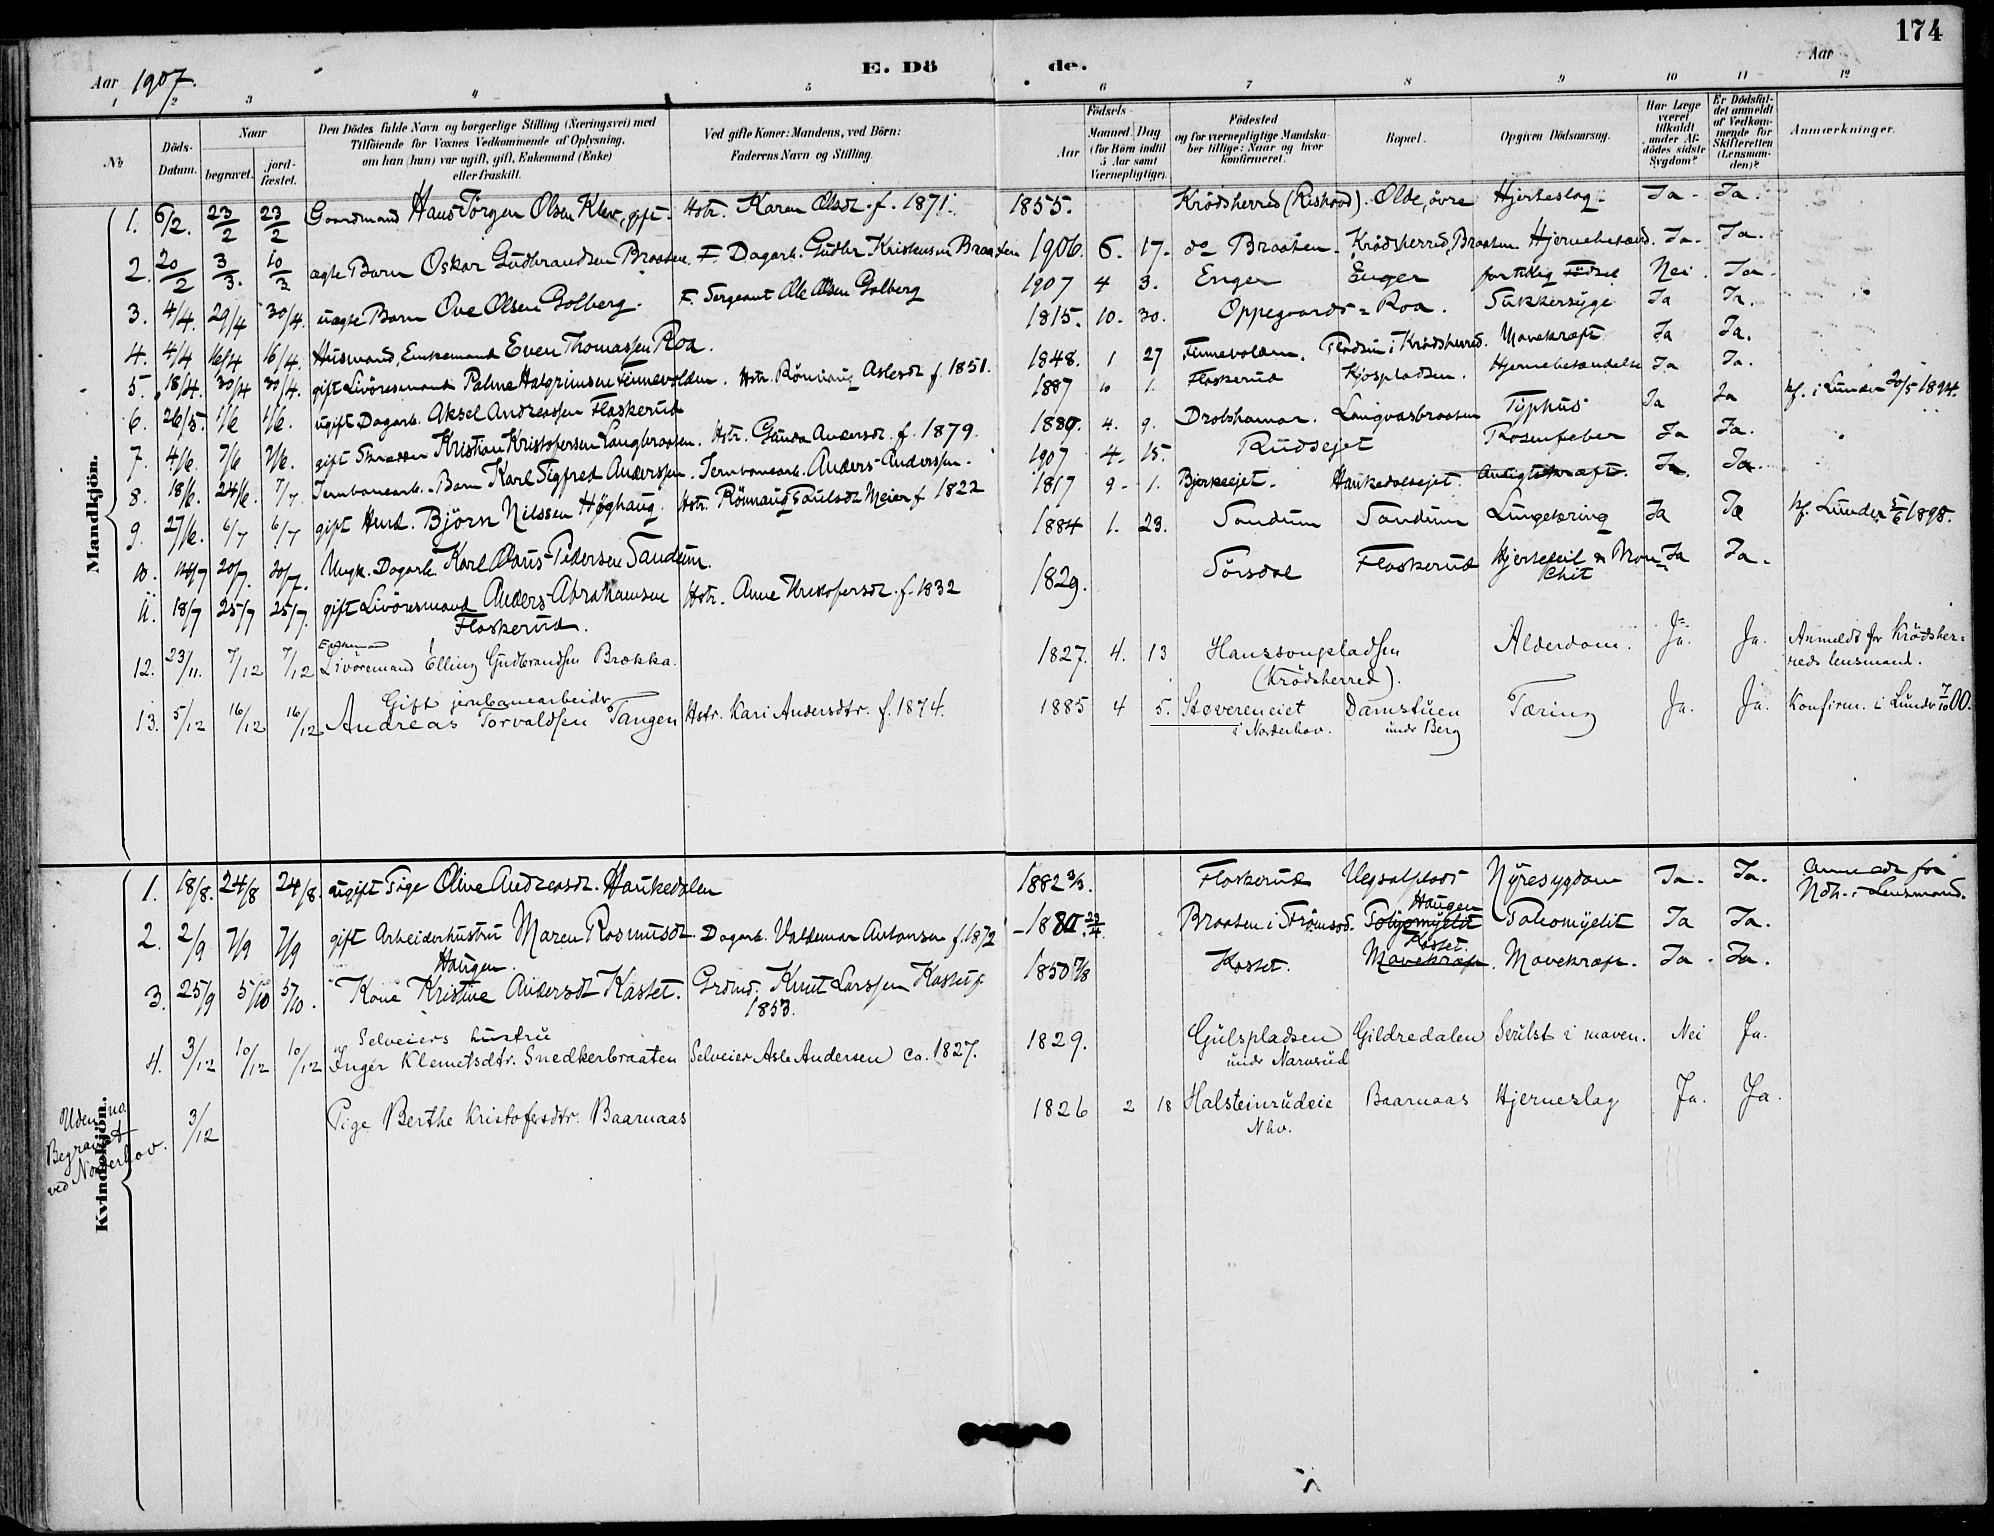 174
Aar 1907.
E. Dö de.
Aar
1 2 3 4 5 6 7 8 9 10 11 12
No
Döds-Datum.
Naar
begravet.
jord-fæstet.
Den Dödes fulde Navn og borgerlige Stilling (Næringsvei) med
Tilföiende for Voxnes Vedkommende af Oplysning,
om han (hun) var ugift, gift, Enkemand (Enke)
eller fraskilt.
Ved gifte Koner: Mandens, ved Börn:
Faderens Navn og Stilling
Födsels-
Aar
Maaned. Dag
(for Börn indtil
5 Aar samt
Værnepligtige).
Födested
og for værnepligtige Mandska-
ber tillige: Naar og hvor
konfirmeret.
Bopæl.
Opgiven Dödsaarsag.
Har Læge
været
tilkaldt
under Af-
dödes sidste
Sygdom?
Er Dödsfal-
det anmeldt
af Vedkom-
mende for
Skifteretten
(Lensman-
den)?
Anmærkninger.
Mandkjön.
1. 6/2. 23/2 23/2 Gaardmand Hans Jörgen Olsen Klev, gift. Hstr. Karen Olsdt. f. 1871. 1855. Krödsherred Olde, övre Hjerteslag. Ja. Ja.
2. 20/2 3/3. 10/3 ægte Barn Oskar Gudbrandsen Braaten. F. Dagarb. Gudbr Kristensen Braaten 1906. 6. 17. do Braaten. Krödsherred, Braaten Hjernebetænd. Ja. Ja.
3. 4/4. 29/4 30/4. uægte Barn Ove Olsen Golberg. F. Sergeant Ole Olsen Golberg 1907 4 3. Enger Enger for tidlig Födsel Nei. Ja.
4. 4/4 16/4 16/4. Husmand, Enkemand Even Thomassen Roa. 1815. 10. 30. Oppegaards= Roa. Sukkersyge Ja Ja.
5. 18/4. 30/4 30/4. gift Livöresmand Palme Halgrimsen Finnevolden. Hstr. Rönnaug Aslesdt f. 1851. 1848. 1 27 Finnevolden. i Krödsherred. Mavekræft Ja Ja.
6. 26/5. 1/6 1/6. ugift Dagarb. Aksel Andreassen Flaskerud 1887 10 1. Flaskerud Kjospladsen. Hjernebetændelse Ja Ja. kf. i Lunder 20/5 1894.
7. 4/6. 7/6 7/6. gift Skrædder Kristian Kristofersen Langbraaten. Hstr. Gunda Andersdt. f. 1879. 1880. 4. 9. Drolshamar. Langvasbraaten Typhus Ja Ja
8. 18/6. 24/6. 7/7 Jernbanearb. Barn Karl Sigfred Anderssen. Jernbanearb. Anders Anderssen. 1907 4. 15. Rudsejet Rosenfeber Ja Ja.
9. 27/6. 6/7 6/7 gift Hmd. Björn Nilssen Höghaug. Hstr. Rönnaug Paulsdt Meier f 1822 1817 9. 1. Bjerkeejet. Haukedalsejet. Ansigtskræft. Ja. Ja.
10. 14/7 20/7. 20/7. Ungk. Dagarb. Karl Olaus Pedersen Sandum. 1884 1. 23. Sandum Sandum Lungetæring Ja Ja kf. Lunder 5/6 1898.
11. 18/7 25/7 25/7. gift Livöresmand Anders Abrahamsen Hstr. Anne Kristofersdt. f. 1832 1829. Sörsdal Flaskerud Hjertefeil & Bron- Ja Ja.
Flaskerud. chit
12. 23/11. 7/12 7/12 Enkemand Livöremand Elling Gudbrandsen Brækka. 1827. 4. 13 Hanssonpladsen Alderdom. Ja. Ja. Anmeldt for Krödsher=
(Krödsherred). reds lensmand.
Gift jernbanearbeider
13. 5/12 16/12 16/12 Andreas Torvaldsen Tangen Hstr. Kari Andersdtr. f. 1874. 1885 4 5. Støvereneiet Damstuen Tæring Ja. Ja. Konfirm. i Lunder 7/10 00.
i Norderhov. under Berg
Kvindekjön.
1. 18/8. 24/8 24/8. ugift Pige Olive Andreasdt. Haukedalen 1882 3/3. Flaskerud Vegsalplads Nyresygdom Ja. Ja. Anmeldt for
Ndh. Lensmand.
Haugen
2. 2/9 7/9 7/9 gift Arbeiderhustru Maren Rasmusdt. Dagarb. Valdemar Antonsen f. 1872 1880 23/4. Braaten i Strömsod. Poliomyelit Ja Ja.
Haugen. Kasset.
3. 25/9 5/10 5/10. Kone Kristine Andersdt Kasset. Grdmd. Knut Larssen Kasset f. 1850 7/8 Kasset. Mavekræft. Mavekræft. Ja. Ja.
1853.
Selveiers hustru
4. 3/12 10/12 10/12 Inger Klemetsdtr. Snedkerbraaten Selveier Asle Andersen ca. 1827. 1829. Gulspladsen Gildredalen Svulst i maven. Nei Ja.
under Narverud
Uden no.
Begravet
ved Norderhov.
3/12 Pige Berthe Kristofersdtr. Baarnaas 1826 2 18 Halsteinrudeie Baarnaas Hjerneslag Ja. Ja.
Nhv.